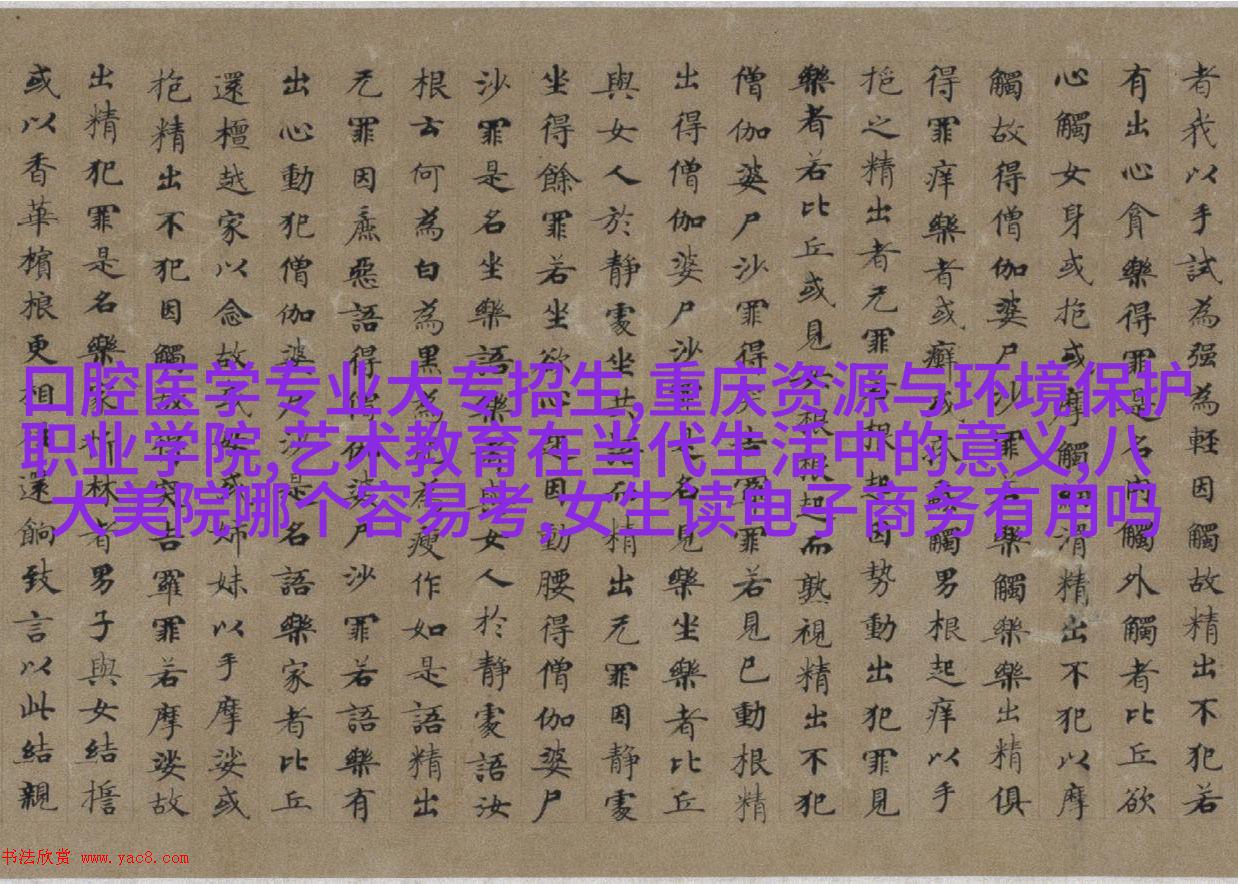 者我以手試為强為輕因觸故精出不犯若
有出心貪樂得罪是名內觸外觸者比丘欲
心觸女身或抱或摩觸細滑精出不犯以摩
觸故得僧伽婆尸沙罪樂觸樂樂出精俱
得罪痒樂者或癬或疥或觸男根起痒以手
抱之精出者无罪若根起因勢動出犯罪見
樂者若比丘或見女根根起而熟視精出不犯
僧伽婆尸沙罪得突吉羅罪若見已動根精
出得僧伽婆尸沙罪是名見樂坐樂者比丘
與女人於靜處坐共語欲精出无罪因靜處
坐得餘罪若坐欲心起因動腰得僧伽婆尸
沙罪是名坐樂語樂者與女人於靜處語汝
根云何為白為黑為肥為瘦作如是語精出
无罪因麁惡語得僧伽婆尸沙罪若語樂有
出心動犯僧伽婆尸沙是名語樂家者比丘
還檀越家以念故或母或姉妹以手摩娑或
抱精出不犯因觸故得突吉羅罪若摩娑故
出精犯罪是名樂家折林者男子與女結誓
或以香華檳榔更相往還餉致言以此結親
口腔医学专业大专招生,重庆资源与环境保护
职业学院,艺术教育在当代生活中的意义,八
大美院哪个容易考,女生读电子商务有用吗
书法欣赏 www.yac8.com